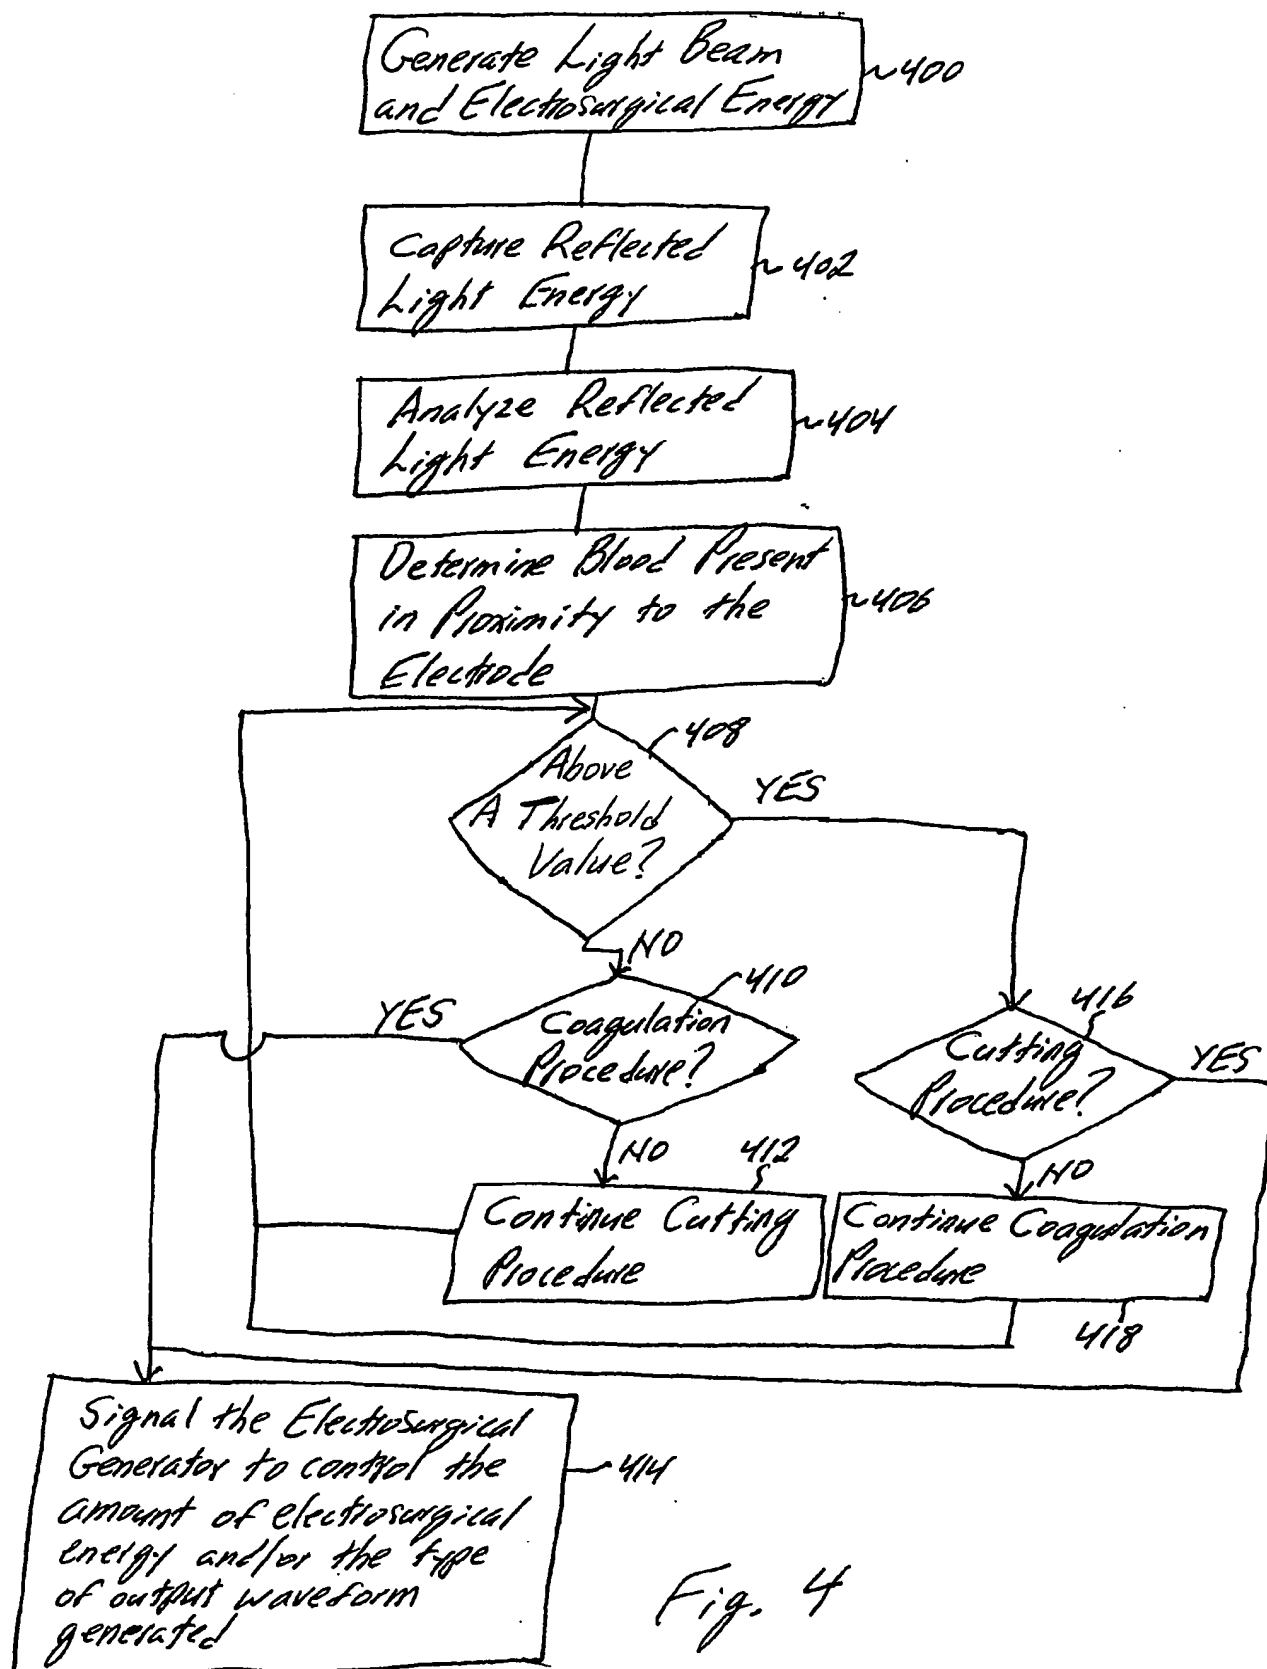 Generate Light Beam
and Electrosurgical Energy
400
Capture Reflected
Light Energy
402
Analyze Reflected
Light Energy
404
Determine Blood Present
in Proximity to the
Electrode
406
408
Above
A Threshold
Value?
YES
NO
410
YES
Coagulation
Procedure?
416
Cutting
Procedure?
YES
NO
412
NO
Continue Cutting
Procedure
Continue Coagulation
Procedure
418
Signal the Electrosurgical
Generator to control the
amount of electrosurgical
energy and/or the type
of output waveform
generated
414
Fig. 4